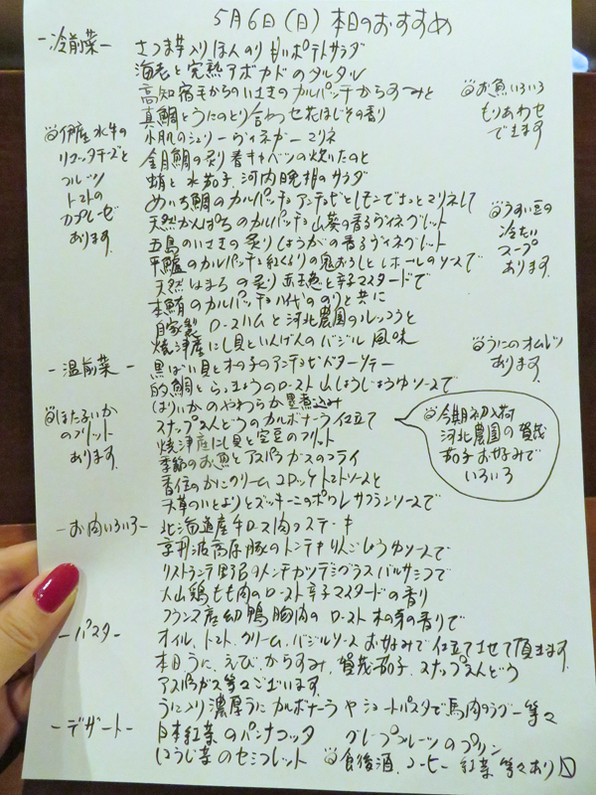 5月6日(日)本日のおすすめ
-冷前菜-
さつま芋入りほんのり甘いポテトサラダ
海老と完熟アボカドのタルタル
高知宿毛からのいさきのカルパッチョからすみと
真鯛とうにのとり合わせ花ほじその香り
小肌のシェリーヴィネガーマリネ
金目鯛の炙り春キャベツの焼いたのと
蛸と水茄子、河内晩柑のサラダ
めいち鯛のカルパッチョアンチョビとレモンでさっとマリネして
天然かんぱちのカルパッチョ山葵の香るヴィネグレット
五島のいさきの炙りしょうがの香るヴィネグレット
平鱸のカルパッチョ紅くるりの鬼おろしとレホールのソースで
天然はまちの炙り 赤玉葱と辛子マスタードで
本鮪のカルパッチョ八代ののりと共に
自家製 ロースハムと河北農園のルッコラと
焼津産にし貝といんげんのバジル風味
◎伊産水牛の
リコッタチーズと
フルーツ
トマトの
カプレーゼ
あります。
◎お魚いろいろ
もりあわせ
できます
◎うすい豆の
冷たい
スープ
あります。
◎うにのオムレツ
あります。
-温前菜-
黒ばい貝ときの子のアンチョビバターソテー
的鯛とらっきょうのロースト山しょうじょうゆソースで
はりいかのやわらか墨煮込み
スナップえんどうのカルボナーラ仕立て
焼津産にし貝と空豆のフリット
季節のお魚とアスパラガスのフライ
香住のかにクリームコロッケトマトソースと
天草のいとよりとズッキーニのポワレサフランソースで
◎ほたるいか
のフリット
あります。
◎今期初入荷
河北農園の賀茂
茄子お好みで
いろいろ
-お肉いろいろ-
北海道産牛ロース肉のステーキ
京丹波高原豚のトンテキりんごしょうゆソースで
リストランテ野沼のメンチカツデミグラスバルサミコで
大山鶏もも肉のロースト辛子マスタードの香り
フランス産幼鴨胸肉のロースト木の芽の香りで
-パスタ-
オイル、トマト、クリーム、バジルソースお好みで仕立てさせて頂きます。
本日うに、えび、からすみ、賀茂茄子、スナップえんどう
アスパラガス等々ございます。
うに入り濃厚うにカルボナーラやショートパスタで馬肉のラグー等々
-デザート-
日本紅茶のパンナコッタ グレープフルーツのプリン
ほうじ茶のセミフレット ◎食後酒、コーヒー 紅茶等々あり〼